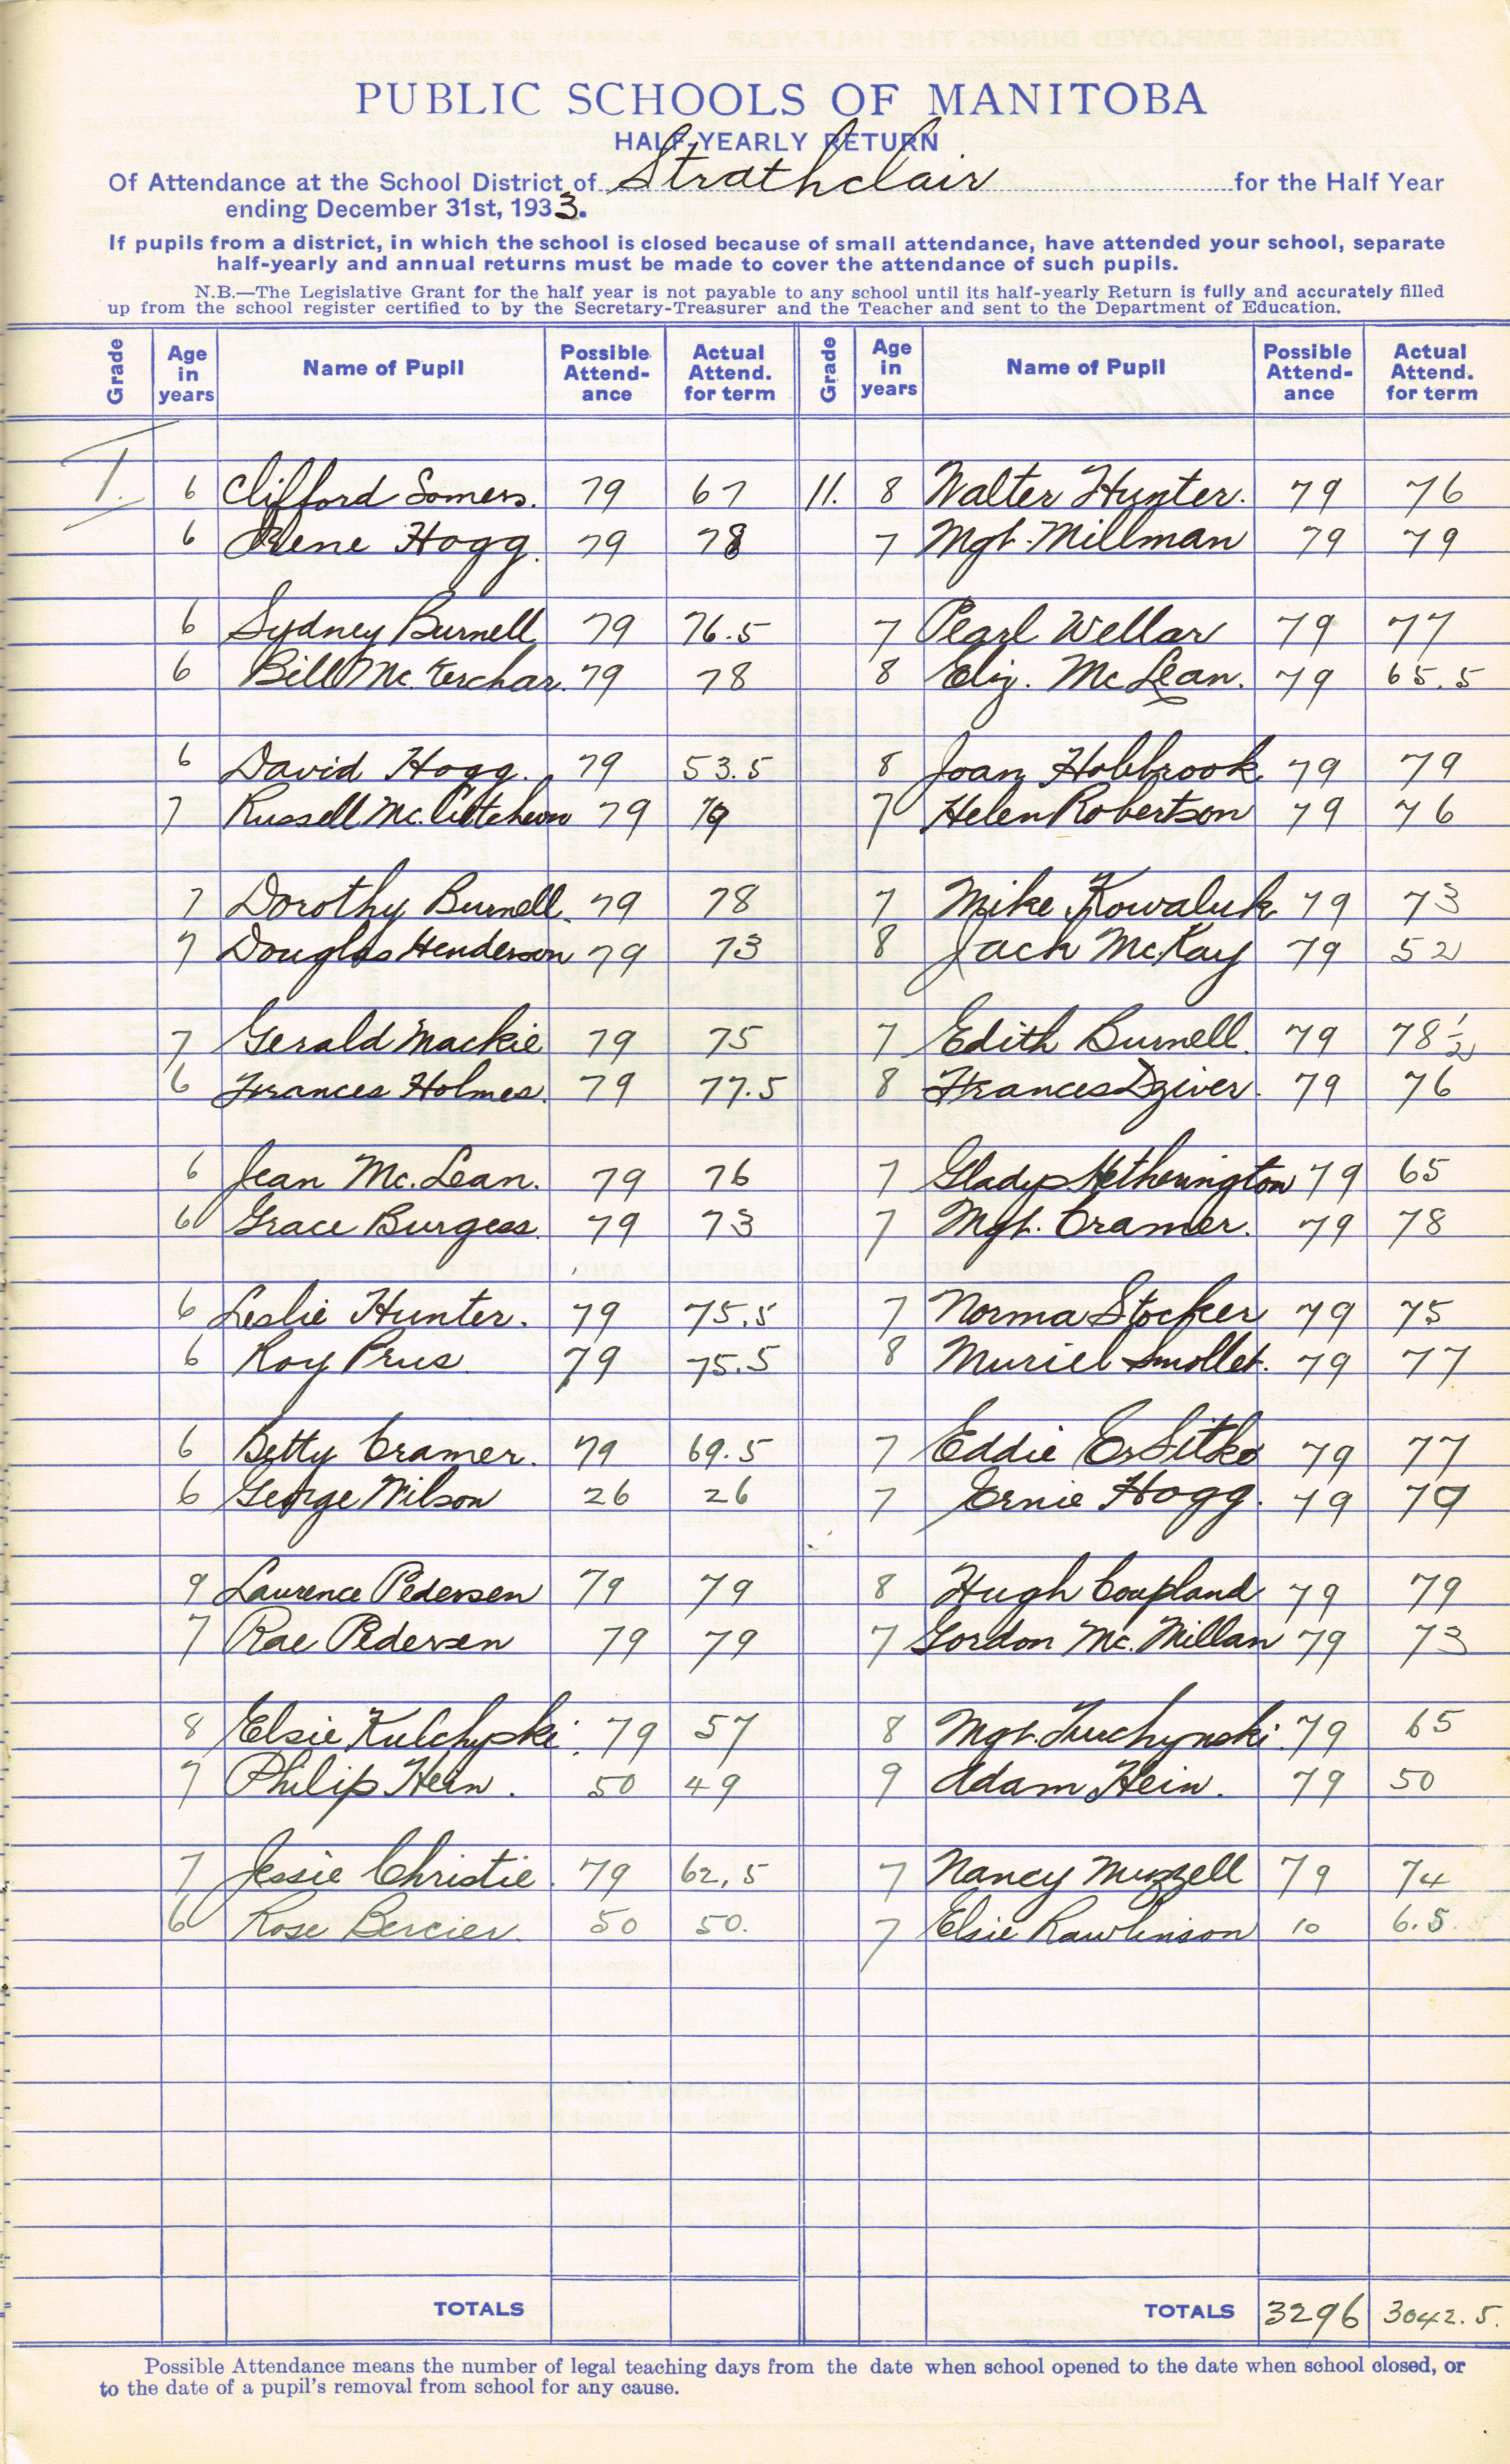 PUBLIC SCHOOLS OF MANITOBA
HALF-YEARLY RETURN
Of Attendance at the School District of Strathclair for the Half Year
ending December 31st, 1933.
If pupils from a district, in which the school is closed because of small attendance, have attended your school, separate
half-yearly and annual returns must be made to cover the attendance of such pupils.
N.B.—The Legislative Grant for the half year is not payable to any school until its half-yearly Return is fully and accurately filled
up from the school register certified to by the Secretary-Treasurer and the Teacher and sent to the Department of Education.
Grade Age in years Name of Pupil Possible Attend-ance Actual Attend. for term Grade Age in years Name of Pupil Possible Attend-ance Actual Attend. for term
I. 6 Clifford Somers. 79 67 11. 8 Walter Hunter. 79 76
6 Irene Hogg. 79 78 7 Mgt. Millman 79 79
6 Sydney Burnell 79 76.5 7 Pearl Wellar 79 77
6 Bill McKerchar. 79 78 8 Eliz. McLean. 79 65.5
6 David Hogg. 79 53.5 8 Joan Holbrook 79 79
7 Russell Mc.Cutcheon 79 79 7 Helen Robertson 79 76
7 Dorothy Burnell. 79 78 7 Mike Kowaluk 79 73
7 Douglas Henderson 79 73 8 Jack McKay 79 52
7 Gerald Mackie 79 75 7 Edith Burnell. 79 78½
6 Frances Holmes. 79 77.5 8 Frances Dziver. 79 76
6 Jean Mc.Lean. 79 76 7 Gladys Hetherington 79 65
6 Grace Burgess. 79 73 7 Mgt. Cramer. 79 78
6 Leslie Hunter. 79 75.5 7 Norma Stocker 79 75
6 Roy Prus 79 75.5 8 Muriel Smollet. 79 77
6 Betty Cramer. 79 69.5 7 Eddie 79 77
6 George Wilson 26 26 7 Ernie Hogg. 79 79
9 Laurence Pedersen 79 79 8 Hugh Coupland 79 79
7 Rae Pedersen 79 79 7 Gordon Mc.Millan 79 73
8 Elsie Kulchyski. 79 57 8 Mgt. Turchynski. 79 65
7 Philip Hein. 50 49 9 Adam Hein. 79 50
7 Jessie Christie. 79 62.5 7 Nancy Muzzell 79 74
6 Rose Bercier. 50 50. 7 Elsie Rawlinson 10 6.5
TOTALS TOTALS 3296 3042.5.
Possible Attendance means the number of legal teaching days from the date when school opened to the date when school closed, or
to the date of a pupil's removal from school for any cause.